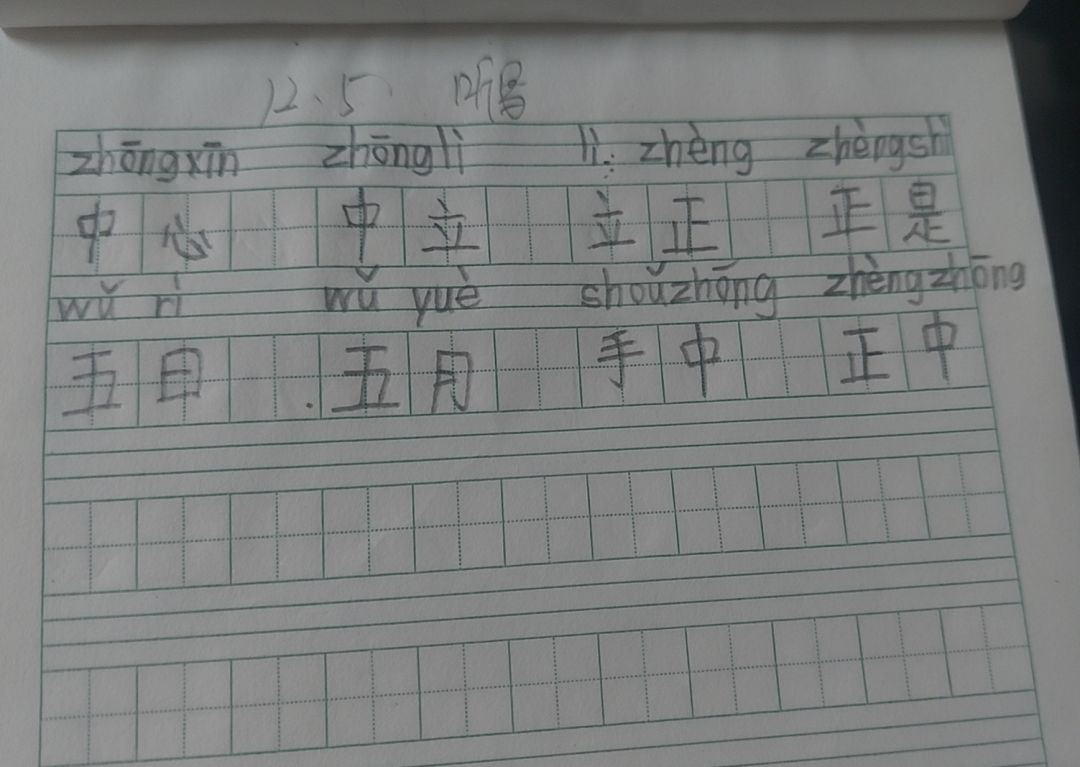 12.5 听写
zhōngxīn zhōnglì lì zhèng zhèngshì
中心 中立 立正 正是
wǔ rì wǔ yuè shǒuzhōng zhèngzhōng
五日 五月 手中 正中